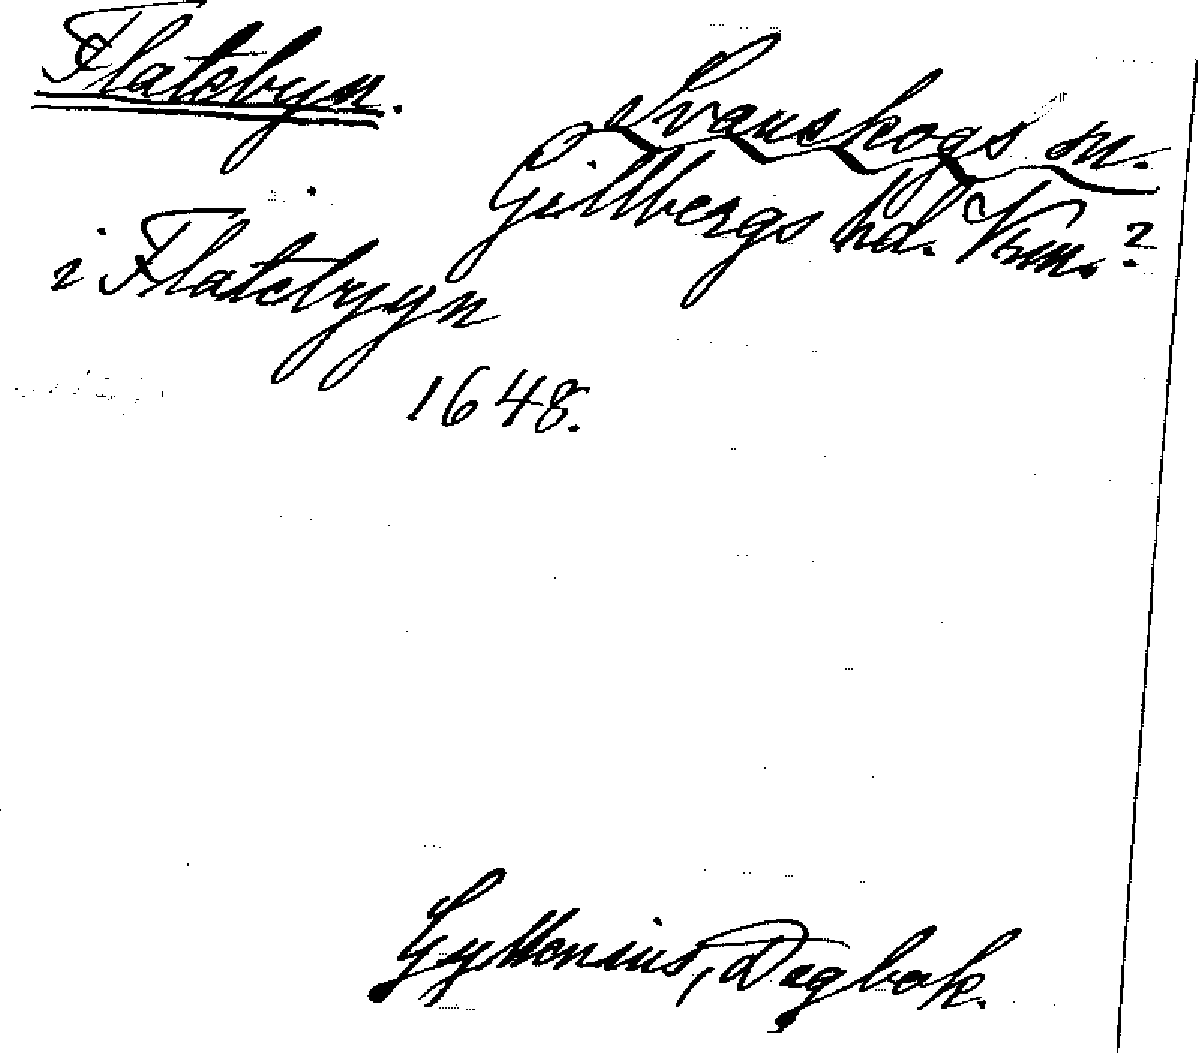 Flatsbyn.
Svanskogs sn.
Gillbergs hd. Vrm.?
i Flatebyyn
1648.
Gyllenius, Dagbok.